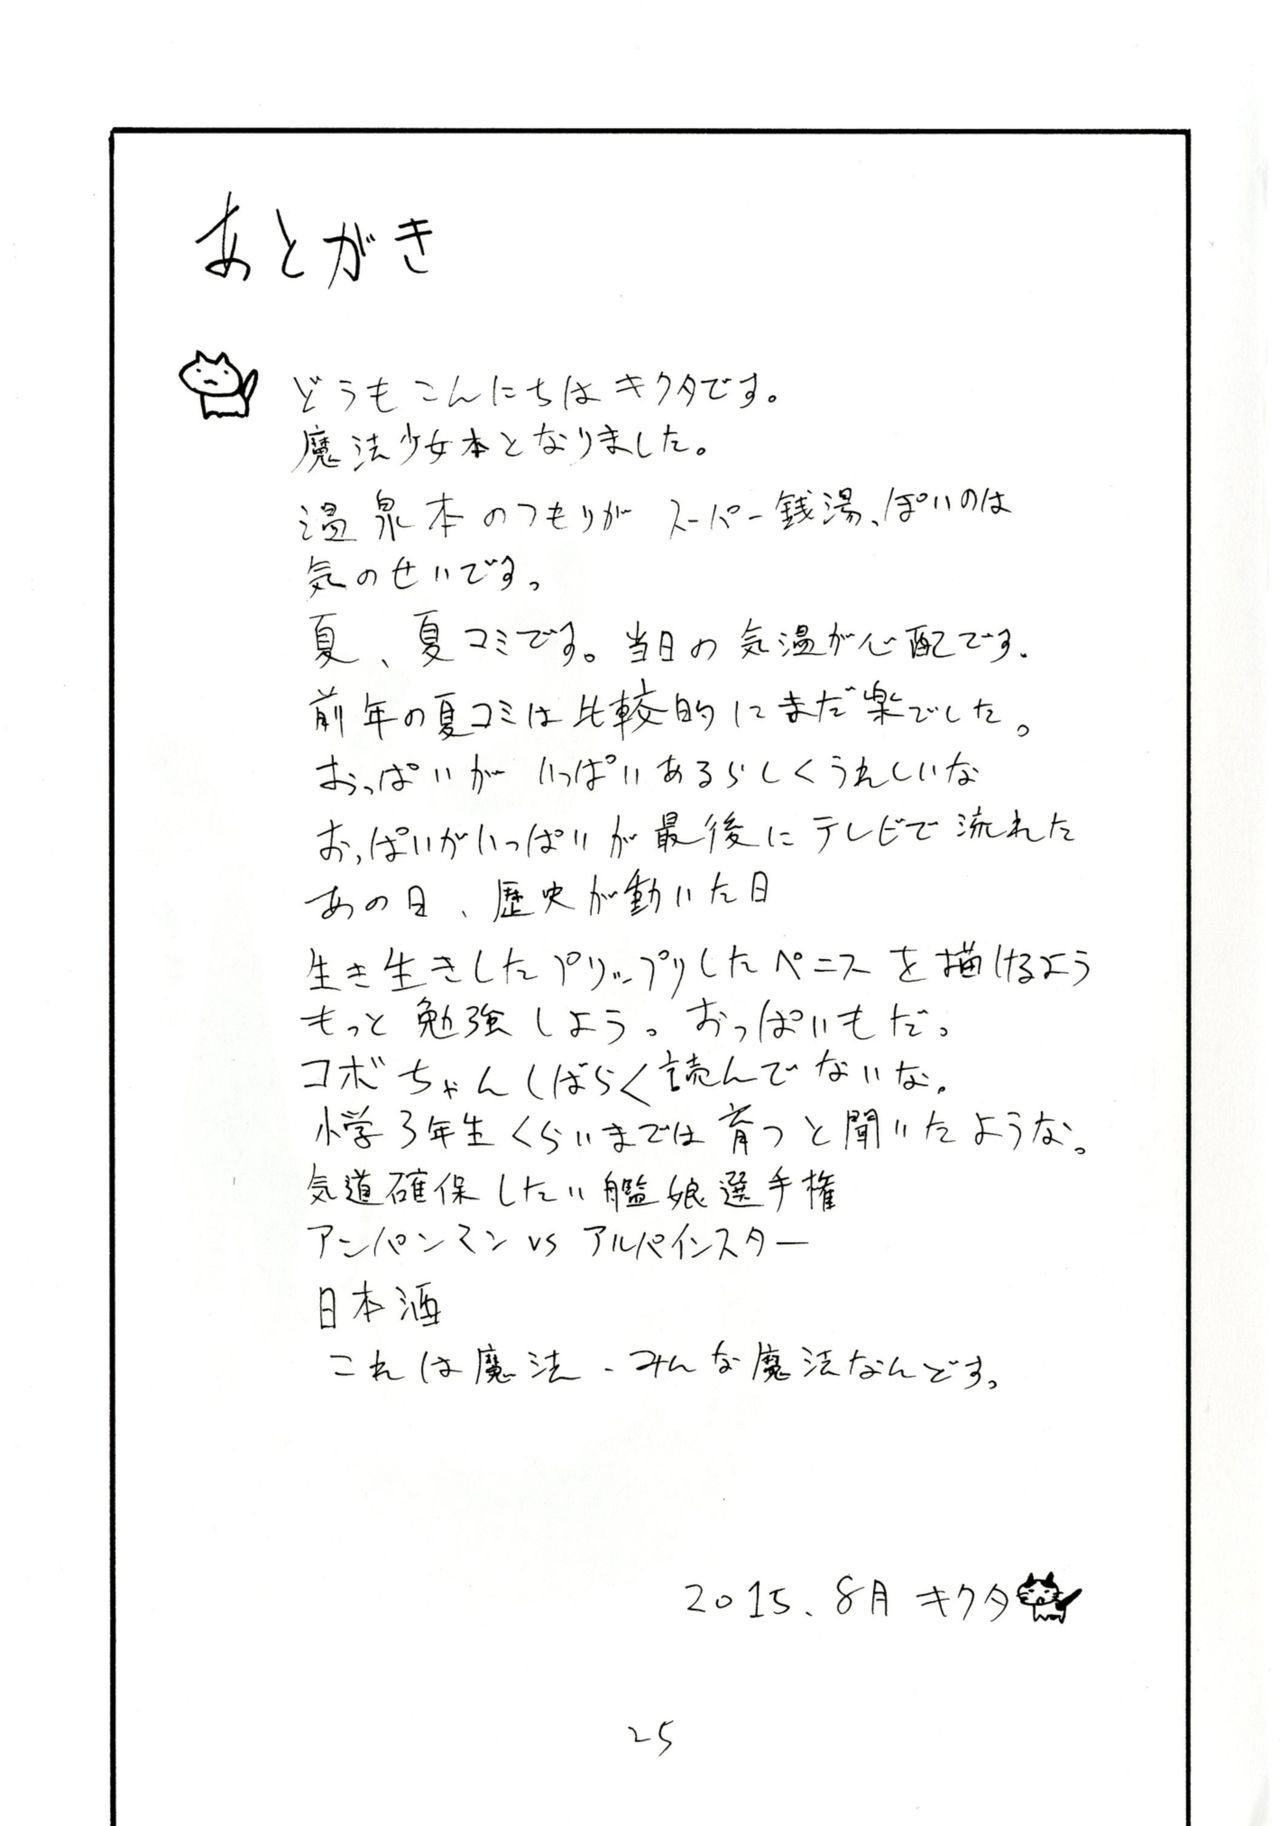 あとがき
どうもこんにちはキクタです。
魔法少女本となりました。
温泉本のつもりがスーパー銭湯っぽいのは
気のせいです。
夏、夏コミです。当日の気温が心配です。
前年の夏コミは比較的にまだ楽でした。
おっぱいがいっぱいあるらしくうれしいな
おっぱいがいっぱいが最後にテレビで流れた
あの日、歴史が動いた日
生き生きしたプリップリしたペニスを描けるよう
もっと勉強しよう。おっぱいもだっ
コボちゃんしばらく読んでないな。
小学3年生くらいまでは育つと聞いたような。
気道確保したい艦娘選手権
アンパンマンvsアルパインスター
日本酒
これは魔法、みんな魔法なんどす。
2015.8月 キクタ
25